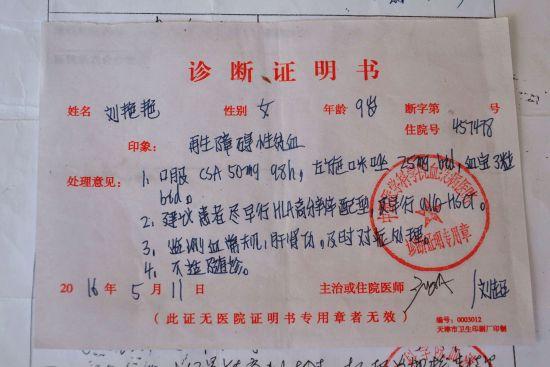 诊断证明书
姓名 刘艳艳 性别 女 年龄 9岁 断字第 号
住院号 457478
印象: 再生障碍性贫血
处理意见: 1、口服 CSA 50mg q8h, 左旋咪唑 75mg btd, 血宝 3粒
btd。
2、建议患者尽早行HLA高分辨配型, 尽早行 allo-HSCT。
3、监测血常规, 肝肾功, 及时对症处理。
4、不适随诊。
2016年5月11日 主治或住院医师
(此证无医院证明书专用章者无效)
编号: 0003012
天津市卫生印刷厂印制
诊断证明专用章